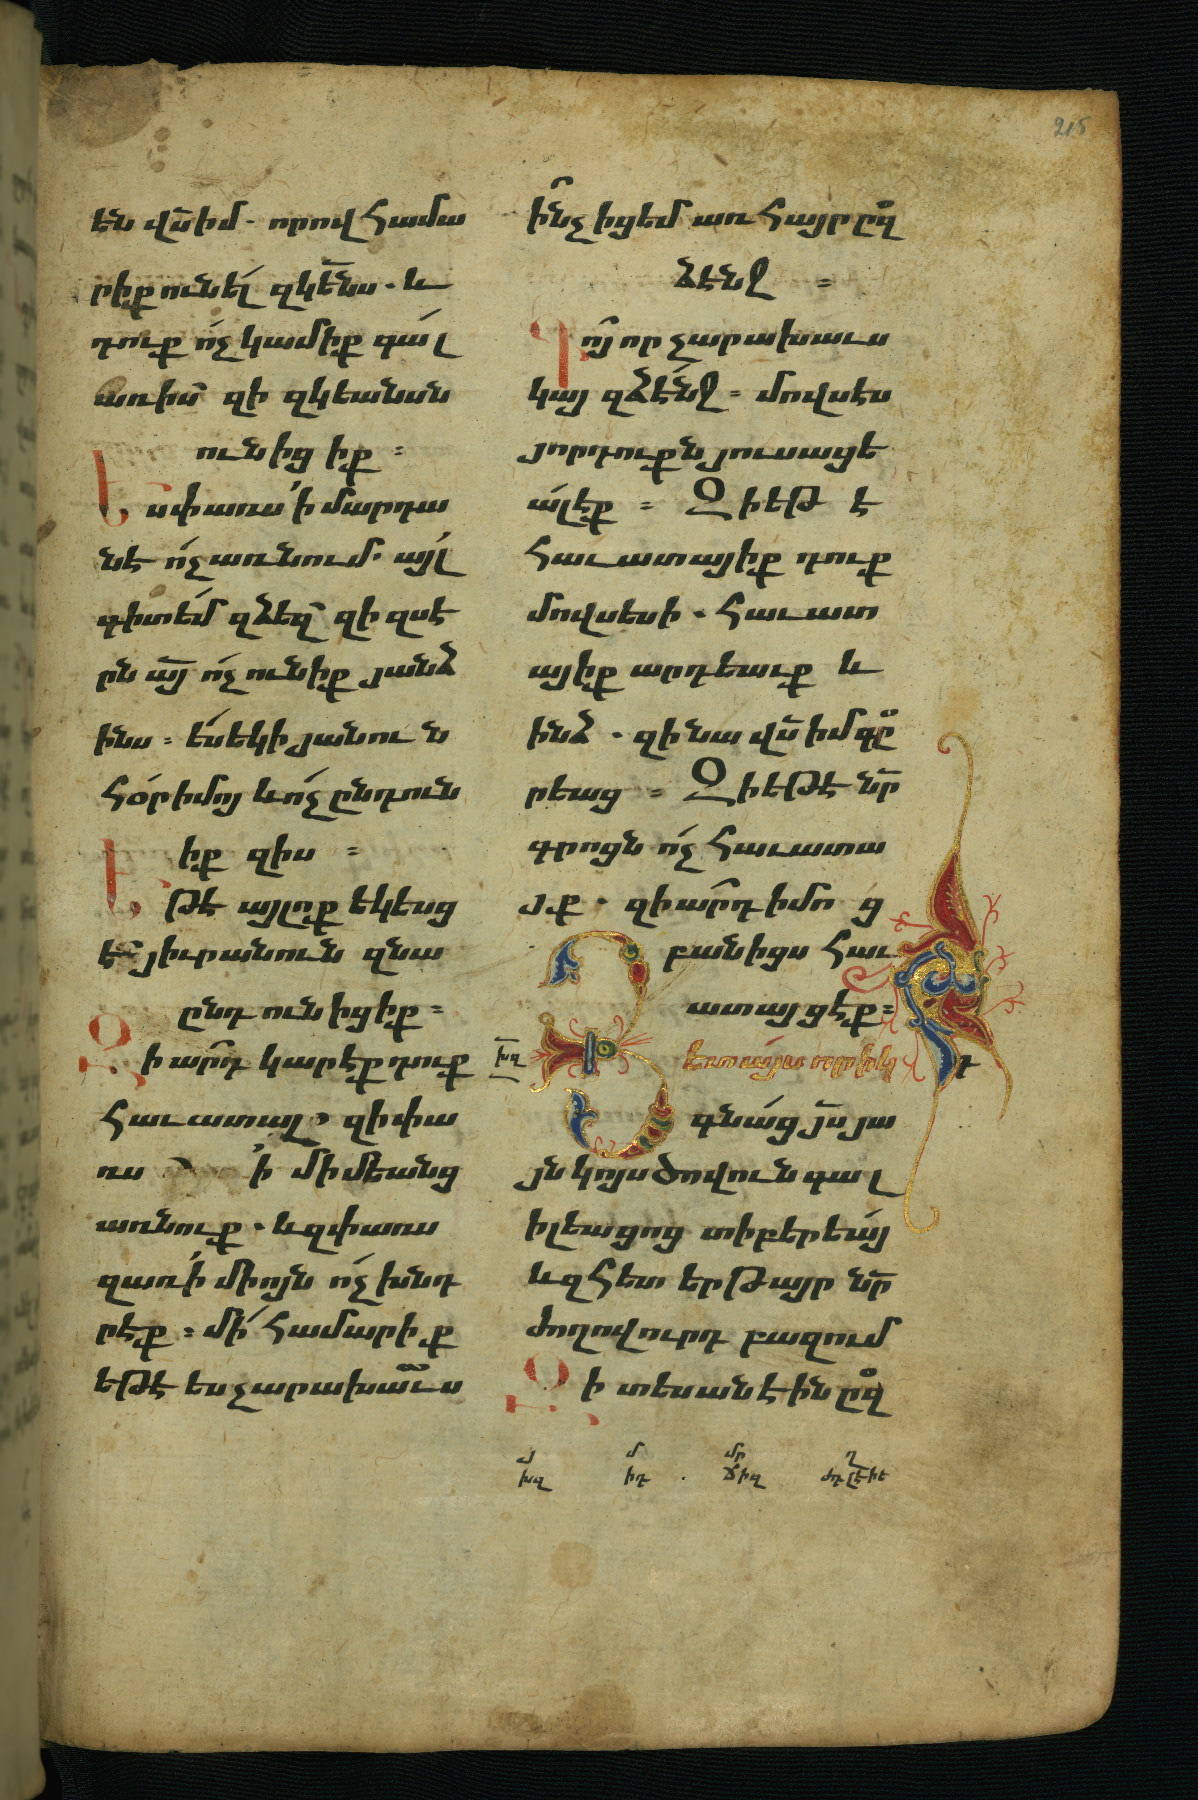 215
են վս̃իմ. որով համա
րիք ունել զկե̃նս. և
դուք ոչ կամիք գալ
առիս̃ զի զկեանսն
ունիցիք:
Եսփառս ՛ի մարդա
նէ ոչ առնում. այլ
գիտեմ զձեզ̃ զի զսէ
րն ա̃յ ոչ ունիք յանձ
ինս: ես եկի յանուն
հօր իմոյ և ոչ ընդուն
իք զիս:
Եթէ այլոք եկեսց
է յիւր անուն զնա
ընդունիցիք:
Զի ա̃րդ կարէք դուք
հաւատալ զի փա
ռս ՛ի միմեանց
առնուք. և զփառս
զառ ՛ի միոյն ոչ խնդ
րէք: մի համարիք
եթէ ես չարախաւս
ի̃նչ իցեմ առ հայր ըզ
ձէնջ:
Գո̃յ որ չարախաւս
կայ զձէնջ: մովսէս
յորդուքն յուսացե
ալէք: Զի եթէ
հաւատայիք դուք
մովսեսի. հաւատ
այիք արդեաւք և
ինձ. զի նա վս̃ իմ գը
րեաց: Զի եթէ նր̃
գրոցն ոչ հաւատա
յք. զիա̃րդ իմոց
բանիցս հաւ
ատայցէք:
խզ Ետ այսորիկ
գնաց յ̃ս յա
յն կոյս ծովուն գալ
իլեացոց տիբերեայ
և զհետ երթայր նր̃
ժողովուրդ բազում
Զի տեսանէին ըզ